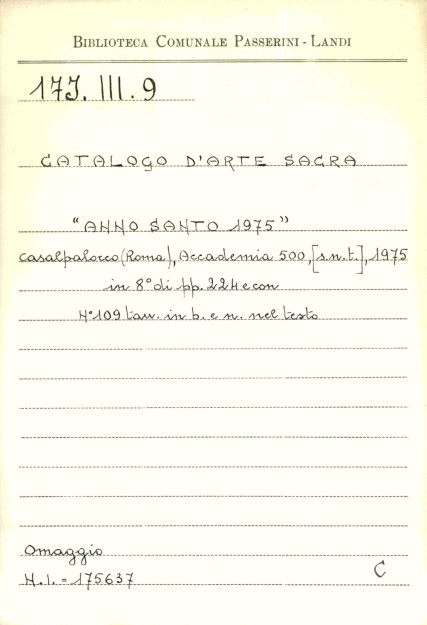 BIBLIOTECA COMUNALE PASSERINI - LANDI
17J. III. 9
CATALOGO D'ARTE SACRA
"ANNO SANTO 1975"
Casalpalocco (Roma), Accademia 500, [s.n.t.], 1975
in 8° di pp. 224 e con
N° 109 tav. in b. e n. nel testo
Omaggio
N.I. = 175637
C